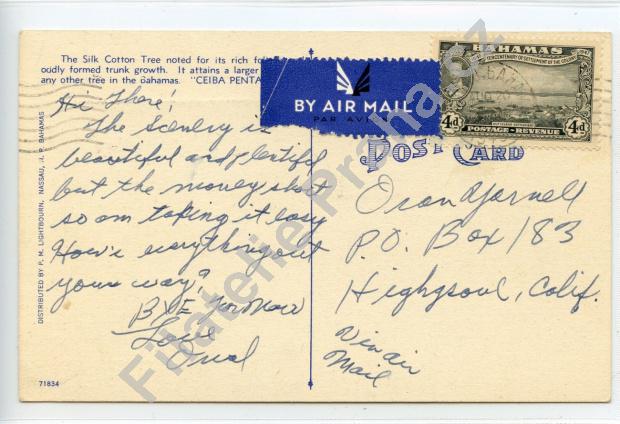 The Silk Cotton Tree noted for its rich fol
oudly formed trunk growth. It attains a larger
any other tree in the Bahamas. "CEIBA PENTA
BY AIR MAIL
PAR AVI
BAHAMAS
TERCENTENARY OF SETTLEMENT OF THE COLONY
4d
4d
POSTAGE - REVENUE
POST CARD
Hi There!
The Scenery is
beautiful and plentiful
but the money short
so am taking it easy
How's everything out
your way?
BYE for Now
Love
Oran Yarnell
P.O. Box 183
Highgsoul, Calif.
Via air
Mail
DISTRIBUTED BY P. M. LIGHTBOURN, NASSAU, N. P. BAHAMAS
71834
Filatelie-Praha.cz